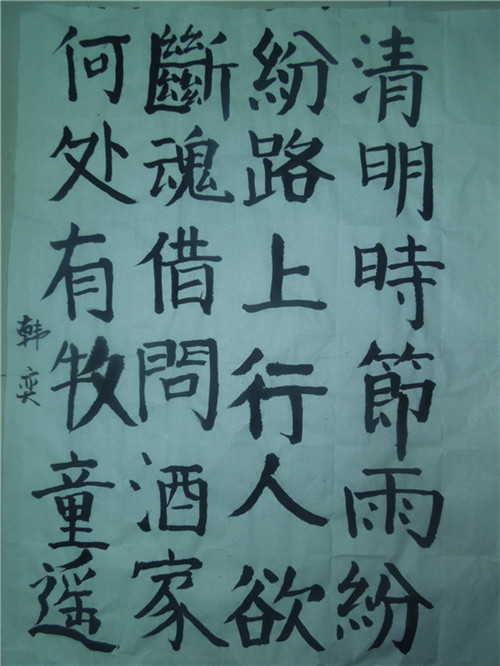 清明時節雨紛
紛路上行人欲
斷魂借問酒家
何处有牧童遥
韩奕